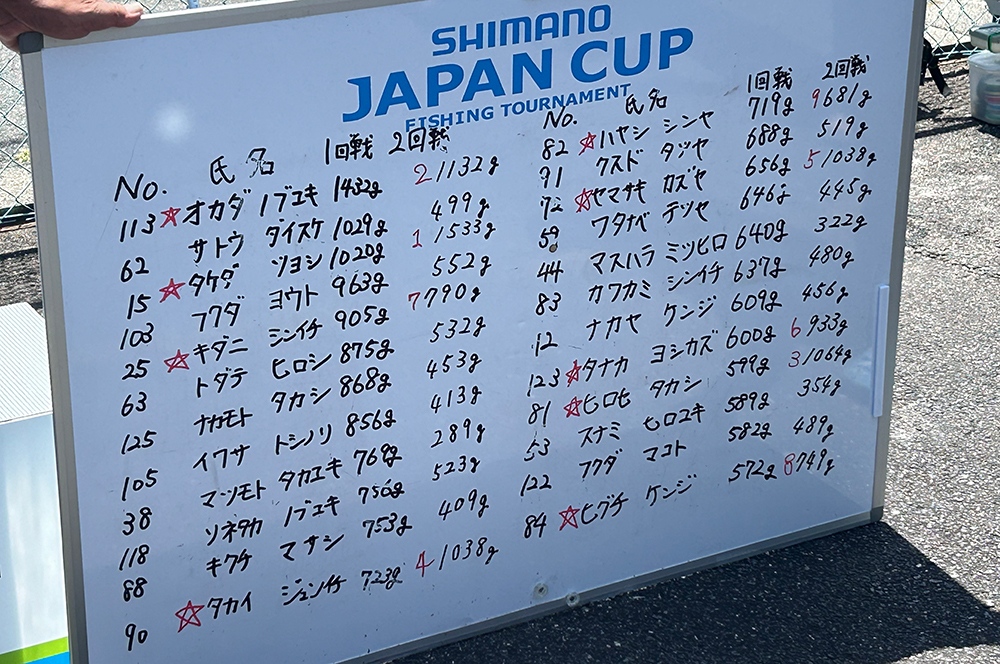 SHIMANO
JAPAN CUP
FISHING TOURNAMENT
No. 氏名 1回戦 2回戦
113 ☆オカダ ノブユキ 1432g 2 1132g
62 サトウ ダイスケ 1029g 499g
15 ☆タケダ ツヨシ 1020g 1 1533g
103 フクダ ヨウト 963g 552g
25 ☆キダニ シンイチ 905g 7 790g
63 トダテ ヒロシ 875g 532g
125 ナカモト タカシ 868g 453g
105 イワサ トシノリ 856g 413g
38 マツモト タカユキ 769g 289g
118 ソネタカ ノブユキ 756g 523g
88 キクチ マサシ 753g 409g
90 ☆タカイ ジュンイチ 723g 4 1038g
No. 氏名 1回戦 2回戦
82 ☆ハヤシ シンヤ 719g 9 681g
91 クスド タツヤ 688g 519g
72 ☆ヤマサキ カズヤ 656g 5 1038g
59 ワタナベ テツヤ 646g 445g
44 マスハラ ミツヒロ 640g 322g
83 カワカミ シンイチ 637g 480g
12 ナカヤ ケンジ 609g 456g
123 ☆タナカ ヨシカズ 600g 6 933g
81 ☆ヒロヒ タカシ 599g 3 1064g
53 スナミ ヒロユキ 589g 354g
122 フクダ マコト 582g 489g
84 ☆ヒグチ ケンジ 572g 8 749g